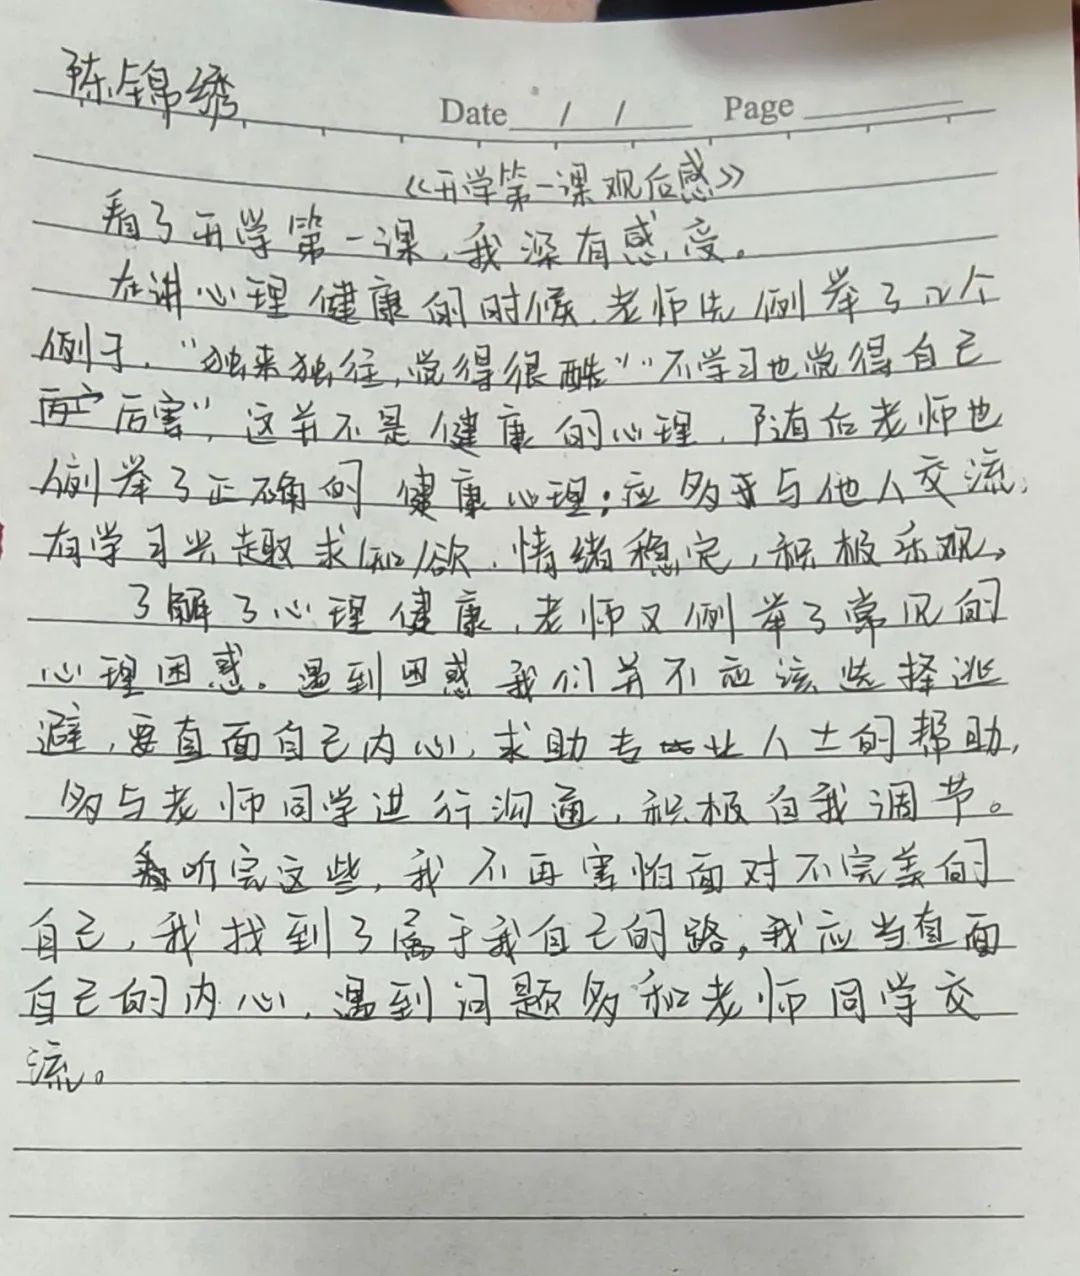 陈锦绣
Date / / Page
《开学第一课观后感》
看了开学第一课,我深有感受。
在讲心理健康的时候,老师先例举了几个
例子,“独来独往,觉得很酷”“不学习也觉得自己
厉害”,这并不是健康的心理,随后老师也
例举了正确的健康心理:应多与他人交流,
有学习兴趣求知欲,情绪稳定,积极乐观。
了解了心理健康,老师又例举了常见的
心理困惑。遇到困惑我们并不应该选择逃
避,要直面自己内心,求助专业人士的帮助,
多与老师同学进行沟通,积极自我调节。
听完这些,我不再害怕面对不完美的
自己,我找到了属于我自己的路,我应当直面
自己的内心,遇到问题多和老师同学交
流。